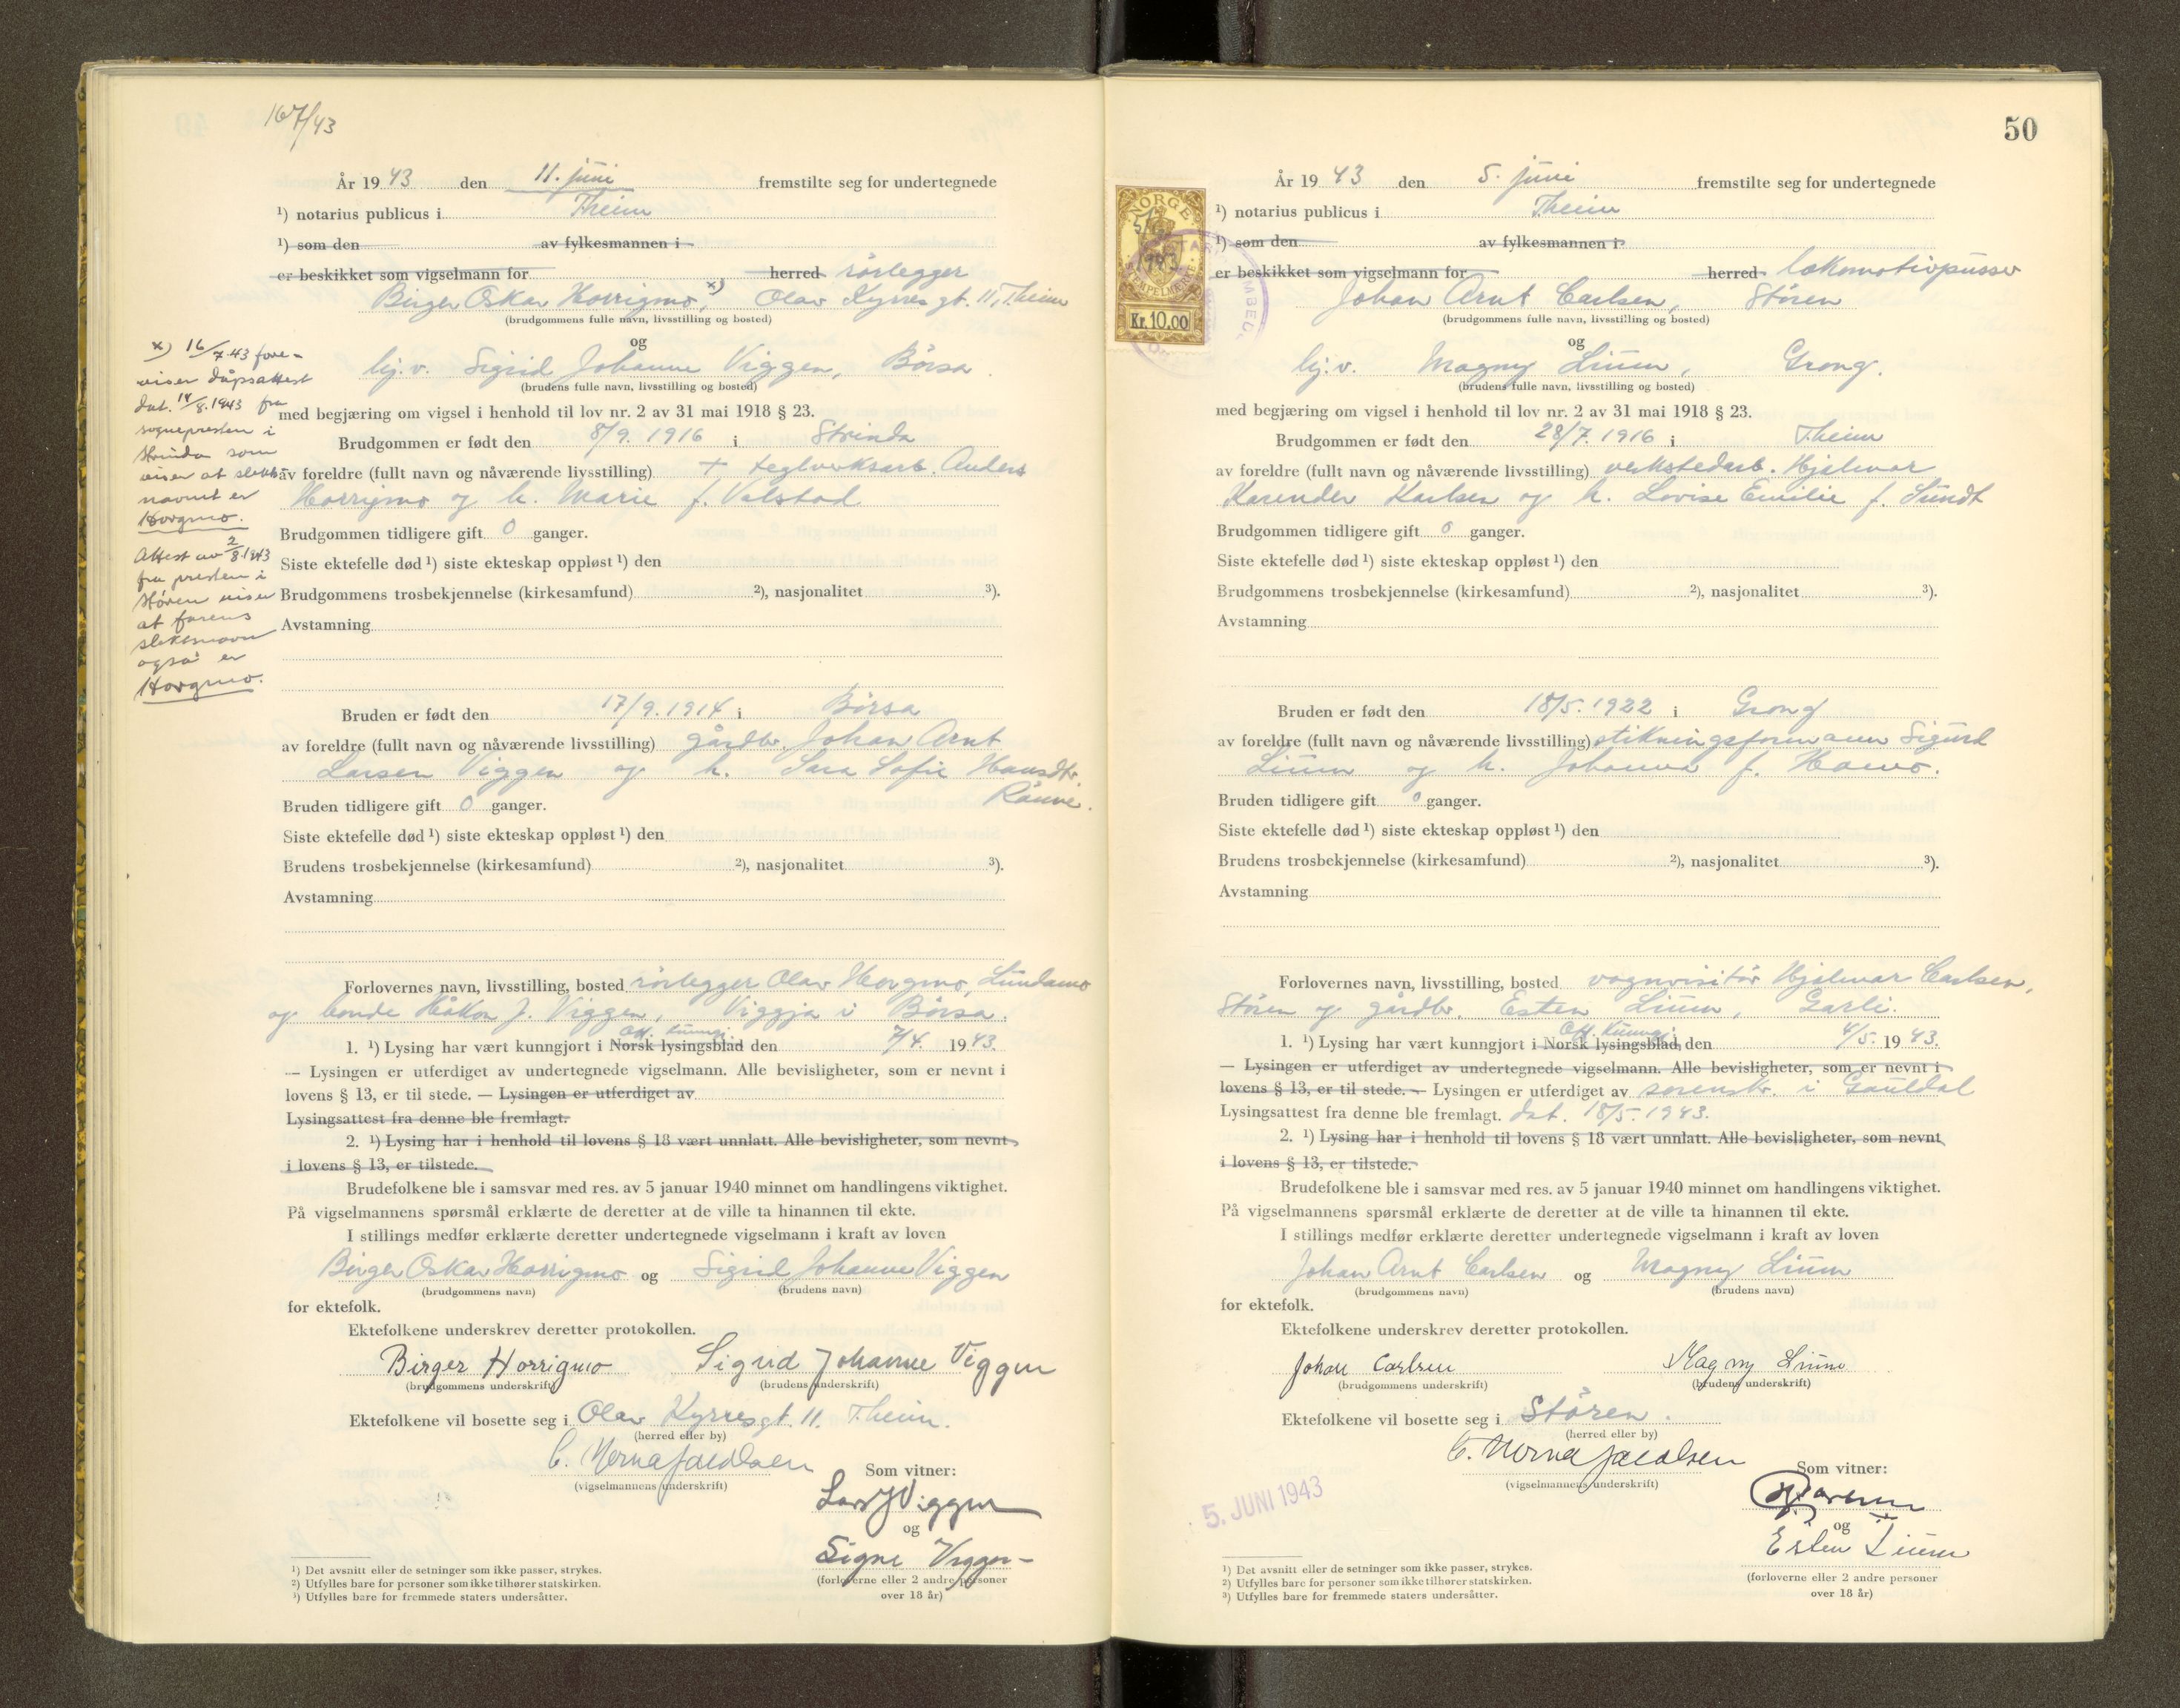 167/43
År 1943 den 11. juni fremstilte seg for undertegnede
¹) notarius publicus i Theim
¹) som den av fylkesmannen i
er beskikket som vigselmann for herred rörlegger
Birger Oskar Horrigmo, x) Olav Kyrres gt. 11, Theim
(brudgommens fulle navn, livsstilling og bosted)
og
hj.v. Sigrid Johanne Viggen, Börsa.
(brudens fulle navn, livsstilling og bosted)
med begjæring om vigsel i henhold til lov nr. 2 av 31 mai 1918 § 23.
Brudgommen er født den 8/9. 1916 i Strinda
av foreldre (fullt navn og nåværende livsstilling) + teglverksarb. Anders
Horrigmo og h. Marie f. Valstad
Brudgommen tidligere gift 0 ganger.
Siste ektefelle død ¹) siste ekteskap oppløst ¹) den
Brudgommens trosbekjennelse (kirkesamfund) ²), nasjonalitet ³).
Avstamning
x) 16/7.43 fore-
viser dåpsattest
dat. 14/8.1943 fra
sognepresten i
Strinda som
viser at slekts-
navnet er
Horgmo.
Attest av 2/8.1943
fra presten i
Stören viser
at farens
slektsnavn
også er
Horgmo.
Bruden er født den 17/9.1914 i Börsa
av foreldre (fullt navn og nåværende livsstilling) gårdbr. Johan Arnt
Larsen Viggen og h. Sara Sofie Hansdtr.
Rånne.
Bruden tidligere gift 0 ganger.
Siste ektefelle død ¹) siste ekteskap oppløst ¹) den
Brudens trosbekjennelse (kirkesamfund) ²), nasjonalitet ³).
Avstamning
Forlovernes navn, livsstilling, bosted rörlegger Olav Horgmo, Lundamo
og bonde Håkon J. Viggen, Viggja i Börsa.
Off. kunngj.
1. ¹) Lysing har vært kunngjort i Norsk lysingsblad den 7/4. 1943.
— Lysingen er utferdiget av undertegnede vigselmann. Alle bevisligheter, som er nevnt i
lovens § 13, er til stede. — Lysingen er utferdiget av
Lysingsattest fra denne ble fremlagt.
2. ¹) Lysing har i henhold til lovens § 18 vært unnlatt. Alle bevisligheter, som nevnt
i lovens § 13, er tilstede.
Brudefolkene ble i samsvar med res. av 5 januar 1940 minnet om handlingens viktighet.
På vigselmannens spørsmål erklærte de deretter at de ville ta hinannen til ekte.
I stillings medfør erklærte deretter undertegnede vigselmann i kraft av loven
Birger Oskar Horrigmo og Sigrid Johanne Viggen
(brudgommens navn) (brudens navn)
for ektefolk.
Ektefolkene underskrev deretter protokollen.
Birger Horrigmo Sigrid Johanne Viggen
(brudgommens underskrift) (brudens underskrift)
Ektefolkene vil bosette seg i Olav Kyrres gt. 11. Theim.
(herred eller by)
C. Norna Jacobsen
(vigselmannens underskrift)
Som vitner:
Lars J Viggen
og
Signe Viggen
(forloverne eller 2 andre personer
over 18 år)
¹) Det avsnitt eller de setninger som ikke passer, strykes.
²) Utfylles bare for personer som ikke tilhører statskirken.
³) Utfylles bare for fremmede staters undersåtter.
50
NORGE
Kr. 10.00
År 1943 den 5. juni fremstilte seg for undertegnede
¹) notarius publicus i Theim
¹) som den av fylkesmannen i
er beskikket som vigselmann for herred lokomotivpusser
Johan Arnt Carlsen, Stören
(brudgommens fulle navn, livsstilling og bosted)
og
hj.v. Magny Lium, Grong.
(brudens fulle navn, livsstilling og bosted)
med begjæring om vigsel i henhold til lov nr. 2 av 31 mai 1918 § 23.
Brudgommen er født den 28/7. 1916 i Theim
av foreldre (fullt navn og nåværende livsstilling) verkstedarb. Hjalmar
Karender Karlsen og h. Lovise Emilie f. Sundt
Brudgommen tidligere gift 0 ganger.
Siste ektefelle død ¹) siste ekteskap oppløst ¹) den
Brudgommens trosbekjennelse (kirkesamfund) ²), nasjonalitet ³).
Avstamning
Bruden er født den 18/5. 1922 i Grong
av foreldre (fullt navn og nåværende livsstilling) stikningsformann Sigurd
Lium og h. Johanna f. Hamo.
Bruden tidligere gift 0 ganger.
Siste ektefelle død ¹) siste ekteskap oppløst ¹) den
Brudens trosbekjennelse (kirkesamfund) ²), nasjonalitet ³).
Avstamning
Forlovernes navn, livsstilling, bosted vognvisitör Hjalmar Carlsen,
Stören og gårdbr. Esten Lium, Garli.
Off. kunngj.
1. ¹) Lysing har vært kunngjort i Norsk lysingsblad, den 4/5. 1943.
— Lysingen er utferdiget av undertegnede vigselmann. Alle bevisligheter, som er nevnt i
lovens § 13, er til stede. — Lysingen er utferdiget av sorenskr. i Gauldal
Lysingsattest fra denne ble fremlagt. dat. 18/5. 1943.
2. ¹) Lysing har i henhold til lovens § 18 vært unnlatt. Alle bevisligheter, som nevnt
i lovens § 13, er tilstede.
Brudefolkene ble i samsvar med res. av 5 januar 1940 minnet om handlingens viktighet.
På vigselmannens spørsmål erklærte de deretter at de ville ta hinannen til ekte.
I stillings medfør erklærte deretter undertegnede vigselmann i kraft av loven
Johan Arnt Carlsen og Magny Lium
(brudgommens navn) (brudens navn)
for ektefolk.
Ektefolkene underskrev deretter protokollen.
Johan Carlsen Magny Lium
(brudgommens underskrift) (brudens underskrift)
Ektefolkene vil bosette seg i Stören.
(herred eller by)
C. Norna Jacobsen
(vigselmannens underskrift)
5. JUNI 1943
Som vitner:
og
Esten Lium
(forloverne eller 2 andre personer
over 18 år)
¹) Det avsnitt eller de setninger som ikke passer, strykes.
²) Utfylles bare for personer som ikke tilhører statskirken.
³) Utfylles bare for fremmede staters undersåtter.